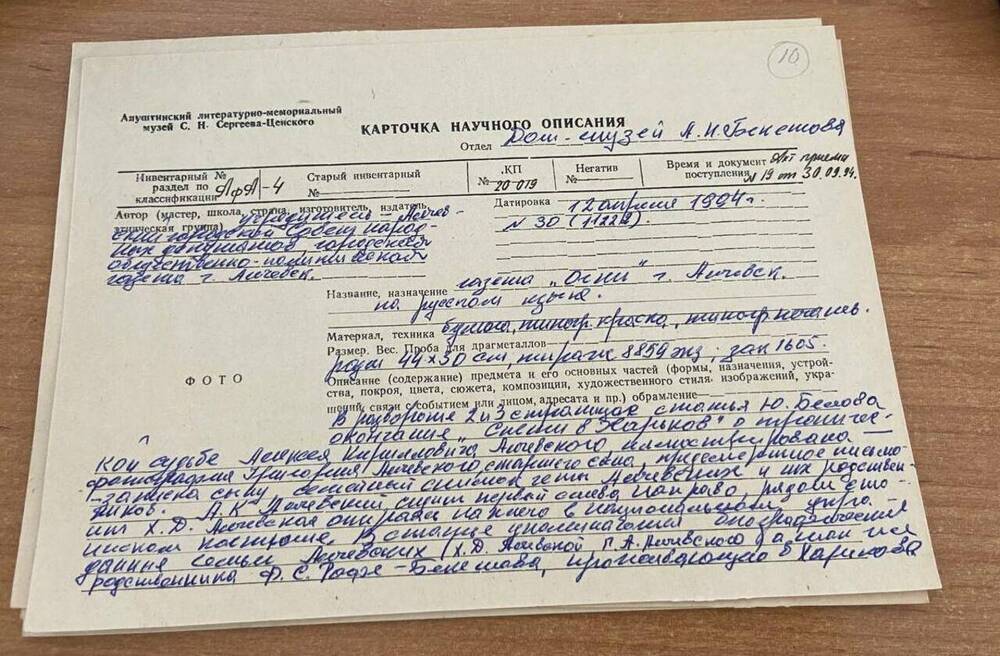 10
Алуштинский литературно-мемориальный
музей С. Н. Сергеева-Ценского
КАРТОЧКА НАУЧНОГО ОПИСАНИЯ
Отдел Дом-музей А.Н.Бекетова
Инвентарный №
раздел по
классификации АфА-4
Старый инвентарный
№
КП
№ 20 019
Негатив
№
Время и документ Акт приема
поступления № 19 от 30.09.94.
Автор (мастер, школа, страна, изготовитель, издатель,
этническая группа) учредитель – Алчев-
ский городской Совет народ-
ных депутатов городская
общественно-политическая
газета г. Алчевск.
Датировка 12 апреля 1994 г.
№ 30 (11222)
Название, назначение газета „Огни" г. Алчевск.
на русском языке.
Материал, техника бумага, типогр. краска, типогр. печать.
Размер. Вес. Проба для драгметаллов
разм 44×30 см, тираж 8859 экз; зак 1605.
ФОТО
Описание (содержание) предмета и его основных частей (формы, назначения, устрой-
ства, покроя, цвета, сюжета, композиции, художественного стиля, изображений, укра-
шений, связи с событием или лицом, адресата и пр.) обрамление
В развороте 2 и 3 страницах статья Ю. Белова
окончание „Спеши в Харьков" о трагичес-
кой судьбе Алексея Кирилловича Алчевского иллюстрирована
фотография Григория Алчевского старшего сына, предсмертное письмо
записка сыну семейный снимок четы Алчевских и их родствен-
ников. А.К Алчевский сидит первой слева направо, рядом сто-
ит Х.Д. Алчевская в национальном укра-
инском костюме В статье упоминается
данные семьи Алчевских (Х.Д. Алчевской Г.А. Алчевского а также
родственника Ф.С. Рофе-Бекетова, проживающего в Харькове